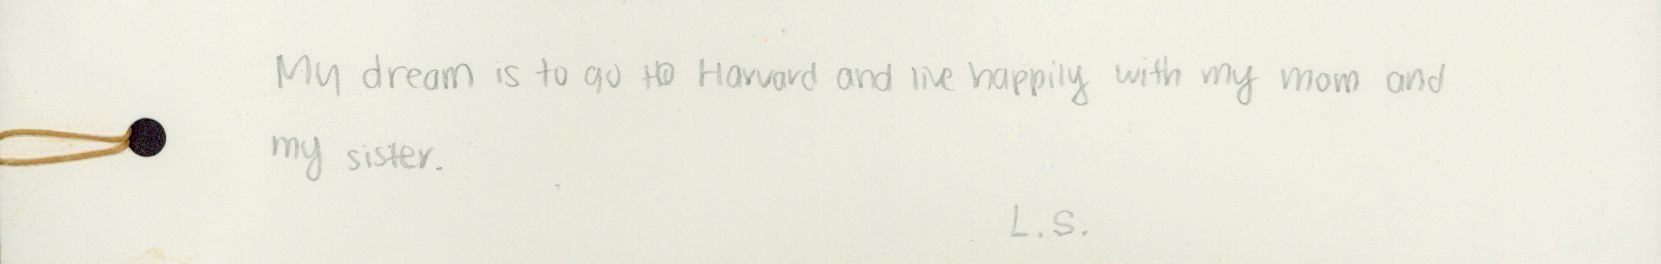 My dream is to go to Harvard and live happily with my mom and
my sister.
L.S.